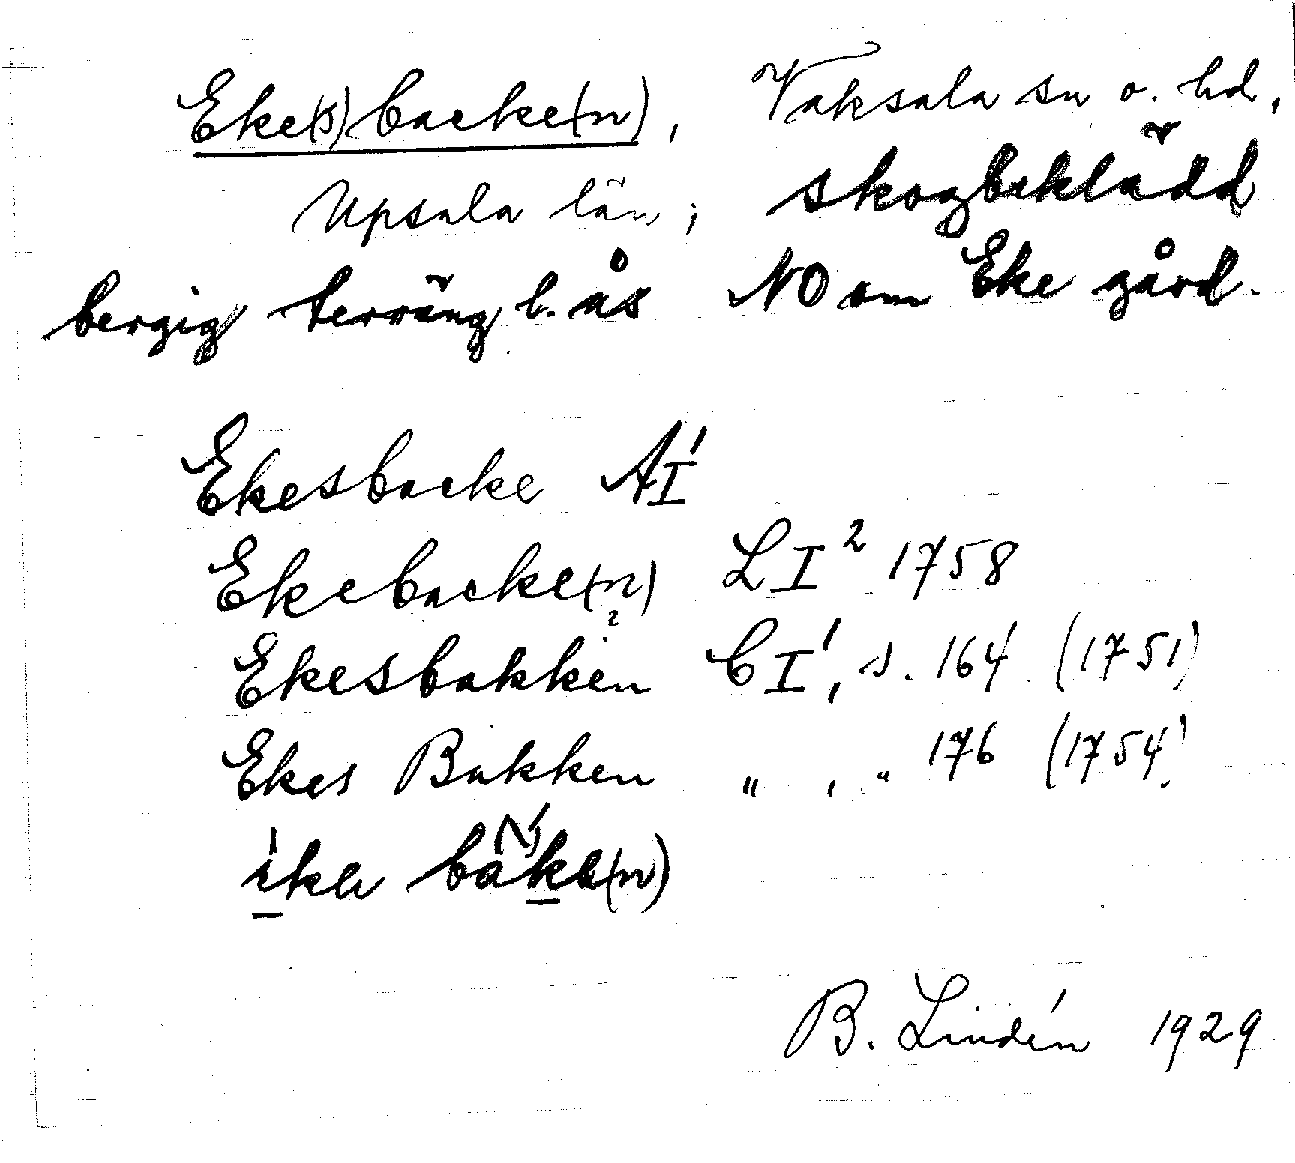 Eke(s)backe(n), Vaksala sn o. hd,
Upsala län; skogbeklädd
bergig terräng l. ås NO om Eke gård.
Ekesbacke AI¹
Ekebacke(n) LI² 1758
Ekesbakken CI¹, s. 164 (1751)
Ekes Bakken „ , „ 176 (1754)
B. Lindén 1929